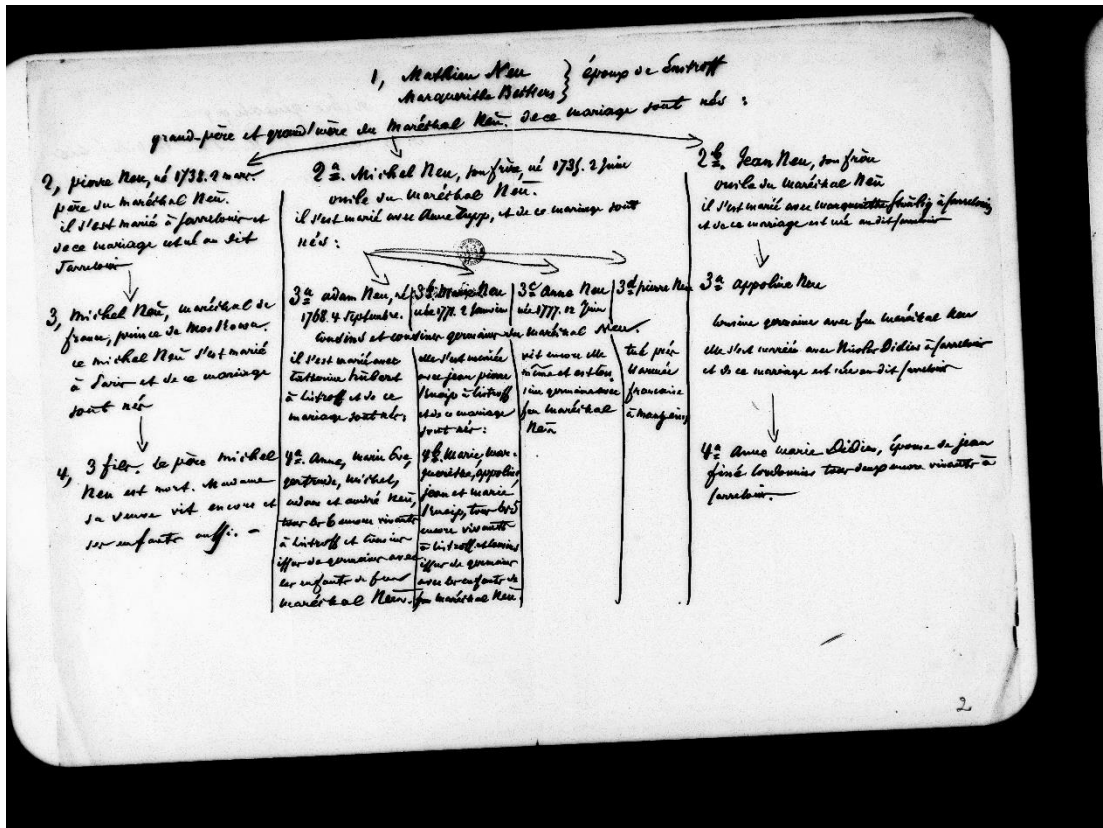 1, Mathieu Neu
Marguerithe Betters } époux de Enstroff
grand-père et grand'mère du Maréchal Neu. de ce mariage sont nés :
2, pierre Neu, né 1738. 2 mars.
père du maréchal Neu.
il s'est marié à Sarrelouis et
de ce mariage est né au dit
Sarrelouis
3, Michel Neu, maréchal de
france, prince de Moskowa.
ce michel Neu s'est marié
à Paris et de ce mariage
sont nés
4, 3 fils. le père michel
Neu est mort. Madame
sa veuve vit encore et
ses enfants aussi. –
2a. Michel Neu, son frère, né 1735. 2 Juin
oncle du maréchal Neu.
il s'est marié avec Anne Zapp, et de ce mariage sont
nés :
3a adam Neu, né
1768. 4. Septembre.
3b Marie Neu
née 1771. 2 Janvier
3c Anne Neu
née 1777. 12 Juin
3d pierre Neu
Cousins et cousines germaines du maréchal Neu.
il s'est marié avec
Catherine hubert
à listroff et de ce
mariage sont nés,
4a. Anne, marie Eve,
gertrude, Michel,
adam et andré Neu,
tous les 6 encore vivants
à listroff et cousins
issus de germains avec
les enfants de feu
maréchal Neu.
elle s'est mariée
avec jean pierre
Knaip à listroff
et de ce mariage
sont nés :
4b. Marie, mar-
guerithe, appoline
jean et marie
Knaip, tous les 5
encore vivants
à listroff et cousins
issus de germains
avec les enfants de
feu maréchal Neu.
vit encore elle
même et est cou-
sine germaine avec
feu maréchal
Neu
tué près
l'armée
francaise
à
2b. Jean Neu, son frère
oncle du maréchal Neu
il s'est marié avec marguerithe à Sarrelouis
et de ce mariage est née au dit Sarrelouis
3a appoline Neu
Cousine germaine avec feu maréchal Neu
elle s'est mariée avec Nicolas Didier à Sarrelouis
et de ce mariage est née au dit Sarrelouis
4a Anne marie Didier, épouse de jean
finé Cordonnier tous deux encore vivants à
Sarrelouis.
2